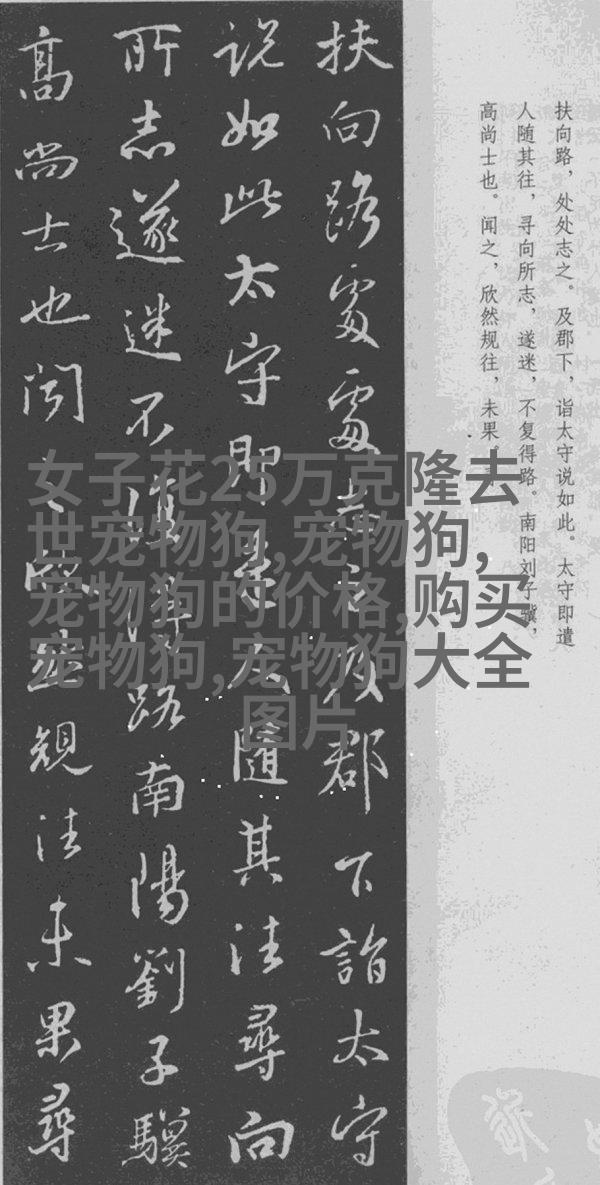 扶向路，处处志之。及郡下，诣太守说如此。太守即遣
人随其往，寻向所志，遂迷，不复得路。南阳刘子骥，
高尚士也。闻之，欣然规往，未果
扶向路處處志之及郡下詣太守
说如此太守即遣人隨其往尋向
所志遂迷不復得路南陽劉子驥
高尚士也闻之欣然規往未果尋
女子花25万克隆去
世宠物狗,宠物狗,
宠物狗的价格,购买
宠物狗,宠物狗大全
图片